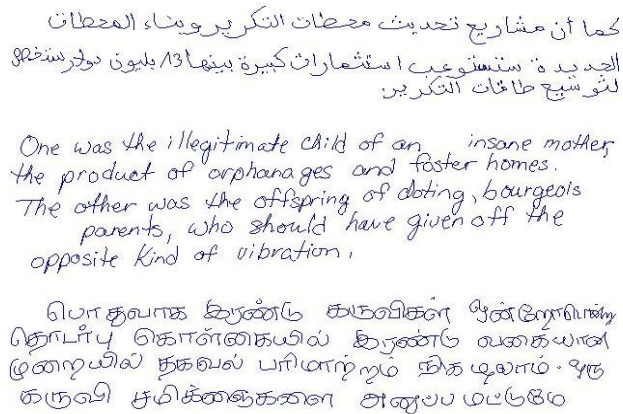 كما أن مشاريع تحديث محطات التكرير وبناء المحطات
الجديدة ستستوعب استثمارات كبيرة بينها 13 بليون دولار ستخصص
لتوسيع طاقات التكرير.
One was the illegitimate child of an insane mother,
the product of orphanages and foster homes.
The other was the offspring of doting, bourgeois
parents, who should have given off the
opposite kind of vibration.
பொதுவாக இரண்டு கருவிகள் ஒன்றோடொன்று
தொடர்பு கொள்கையில் இரண்டு வகையான
முறையில் தகவல் பரிமாற்றம் நிகழலாம். ஒரு
கருவி சமிக்ஞைகளை அனுப்ப மட்டுமே